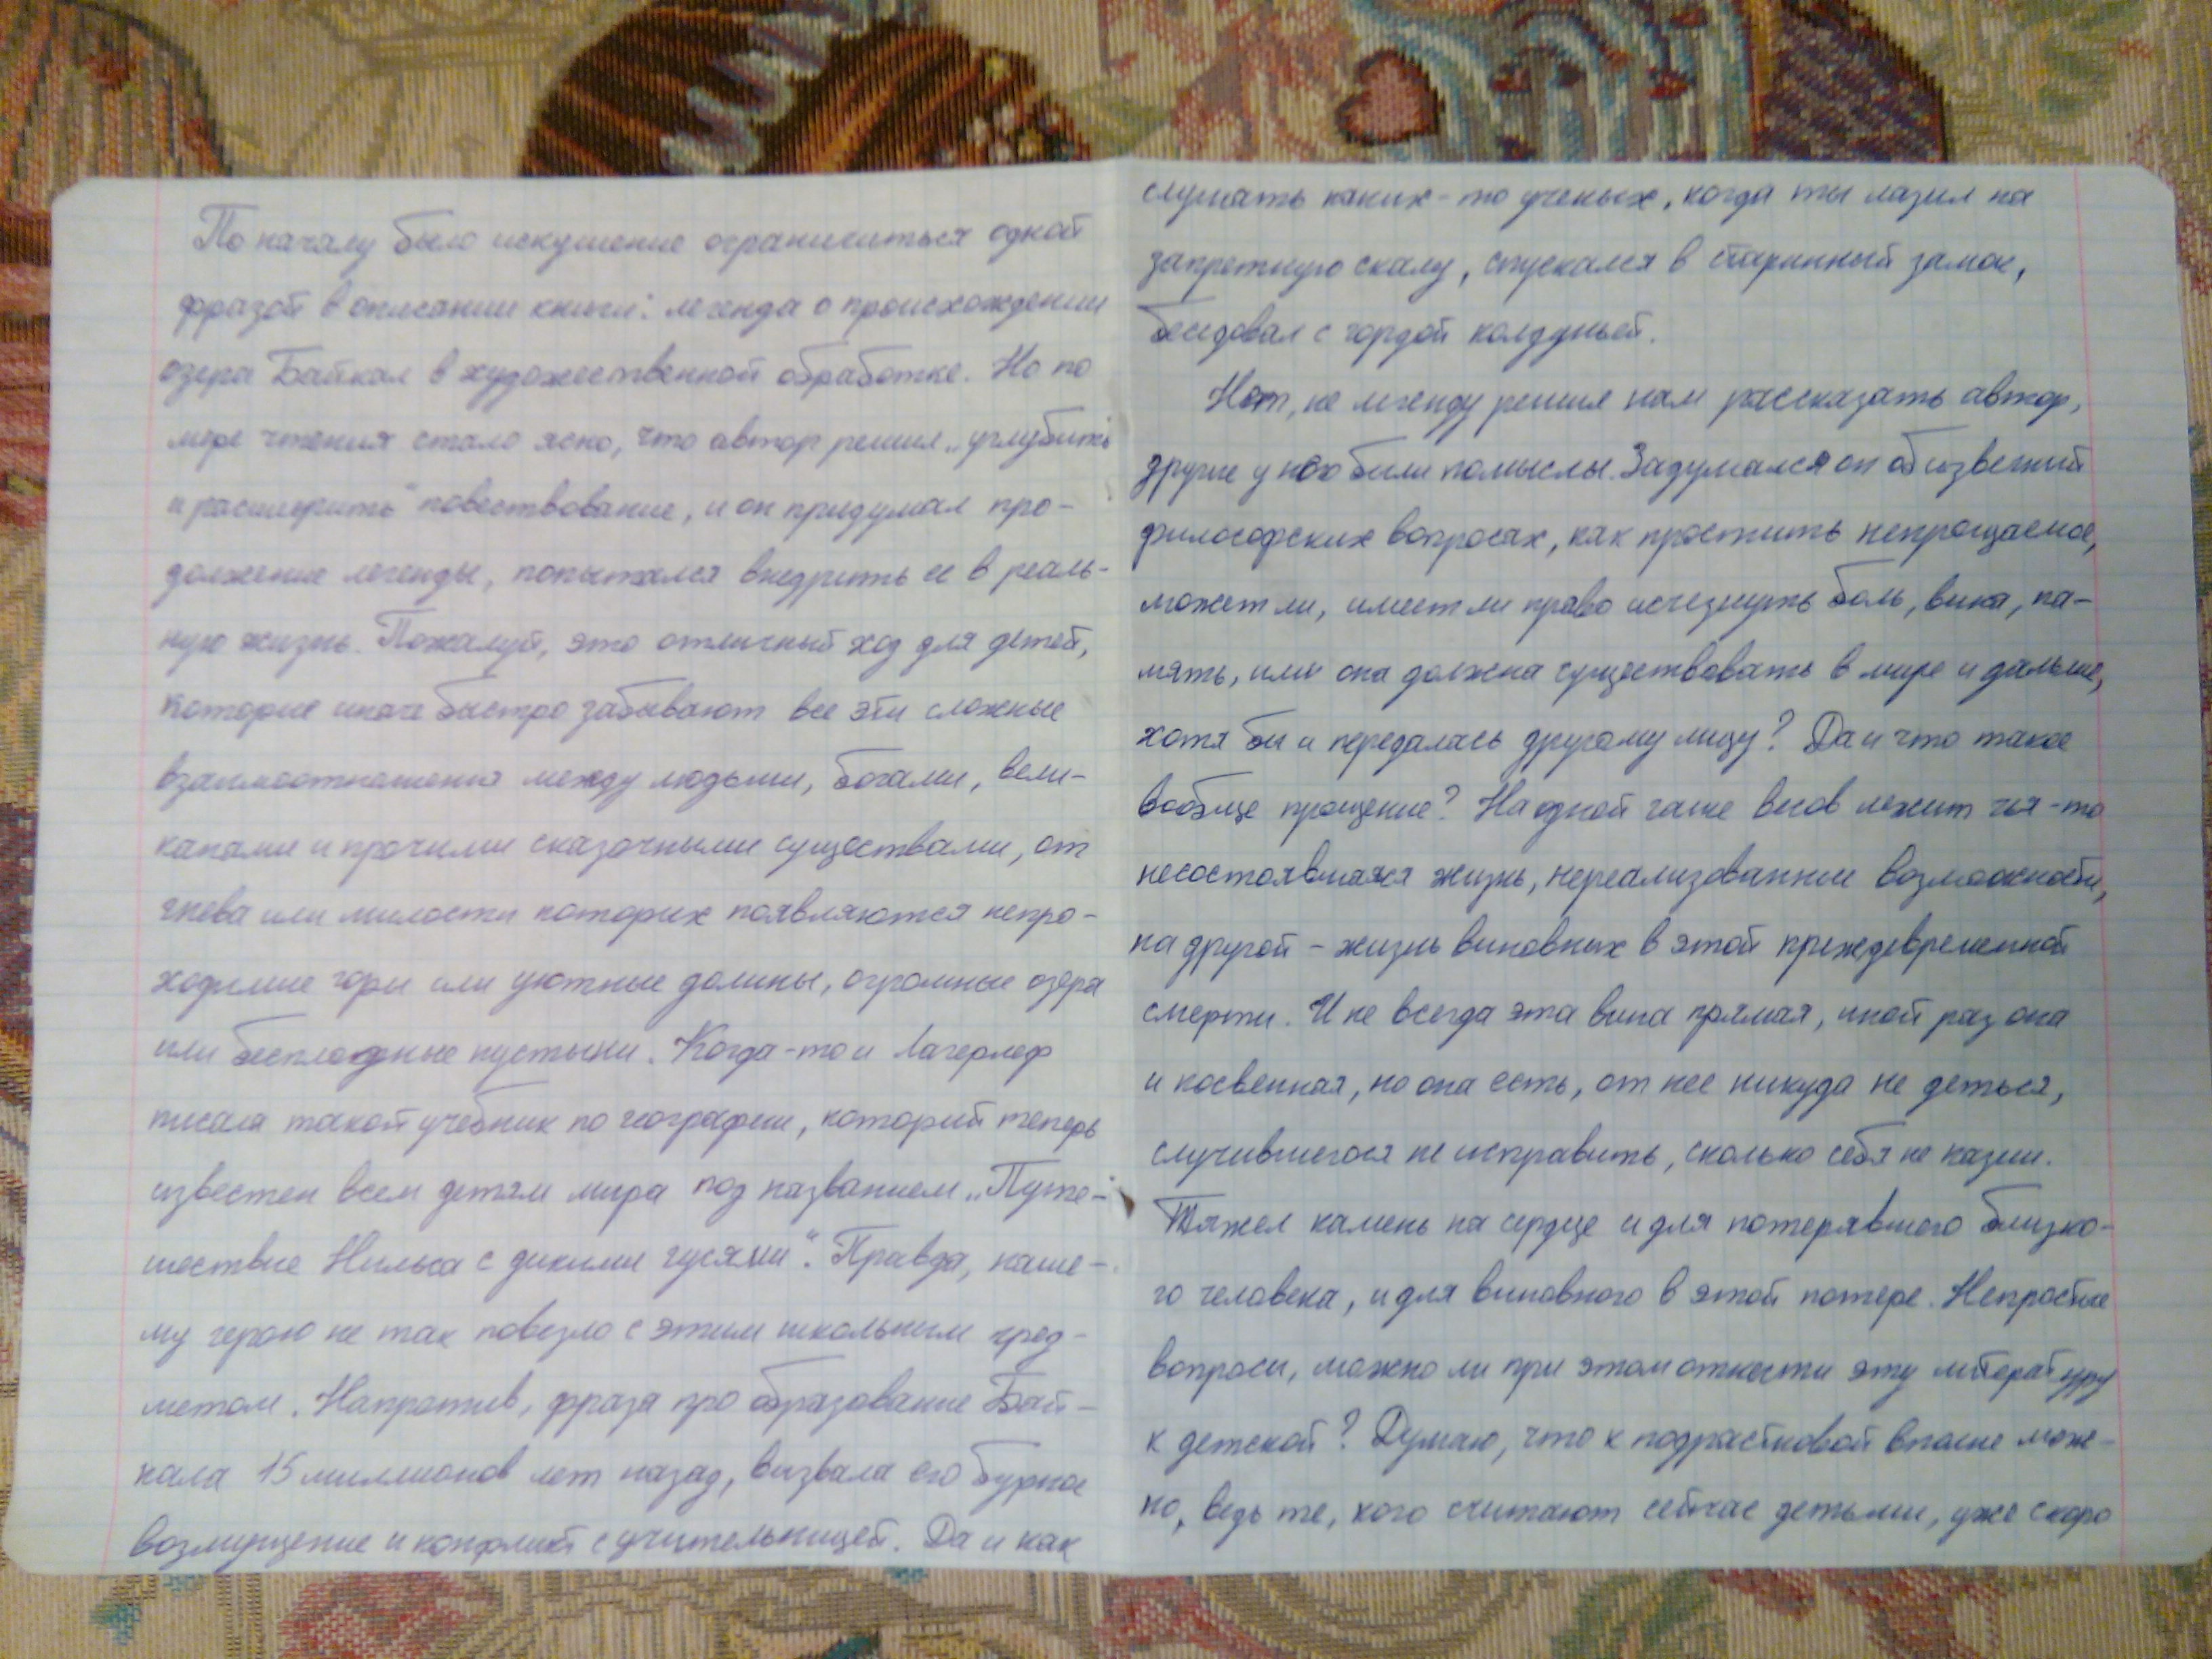 По началу было искушение ограничиться одной
фразой в описании книги: легенда о происхождении
озера Байкал в художественной обработке. Но по
мере чтения стало ясно, что автор решил „углубить
и расширить“ повествование, и он придумал про-
должение легенды, попытался внедрить ее в реаль-
ную жизнь. Пожалуй, это отличный ход для детей,
которые иначе быстро забывают все эти сложные
взаимоотношения между людьми, богами, вели-
канами и прочими сказочными существами, от
гнева или милости которых появляются непро-
ходимые горы или уютные долины, огромные озера
или бесплодные пустыни. Когда-то и Лагерлеф
писала такой учебник по географии, который теперь
известен всем детям мира под названием „Путе-
шествие Нильса с дикими гусями“. Правда, наше-
му герою не так повезло с этим школьным пред-
метом. Напротив, фраза про образование Бай-
кала 15 миллионов лет назад, вызвала его бурное
возмущение и конфликт с учительницей. Да и как
слушать каких-то ученых, когда ты лазил на
запретную скалу, спускался в старинный замок,
беседовал с гордой колдуньей.
Нет, не легенду решил нам рассказать автор,
другие у него были помыслы. Задумался он об извечных
философских вопросах, как простить непрощаемое,
может ли, имеет ли право исчезнуть боль, вина, па-
мять, или она должна существовать в мире и дальше,
хотя бы и передалась другому лицу? Да и что такое
вообще прощение? На одной чаше весов лежит чья-то
несостоявшаяся жизнь, нереализованные возможности,
на другой - жизнь виновных в этой преждевременной
смерти. И не всегда эта вина прямая, иной раз она
и косвенная, но она есть, от нее никуда не деться,
случившегося не исправить, сколько себя не казни.
Тяжел камень на сердце и для потерявшего близко-
го человека, и для виновного в этой потере. Непростые
вопросы, можно ли при этом отнести эту литературу
к детской? Думаю, что к подростковой вполне мож-
но, ведь те, кого считают сейчас детьми, уже скоро